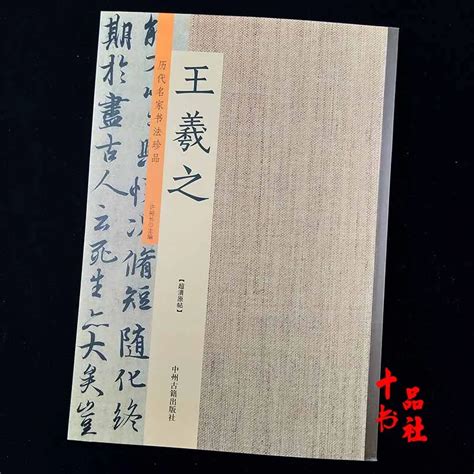 王羲之
历代名家书法珍品
【超清原帖】
中州古籍出版社
脩短随化終
期於盡古人云死生亦大矣豈
十品
书社